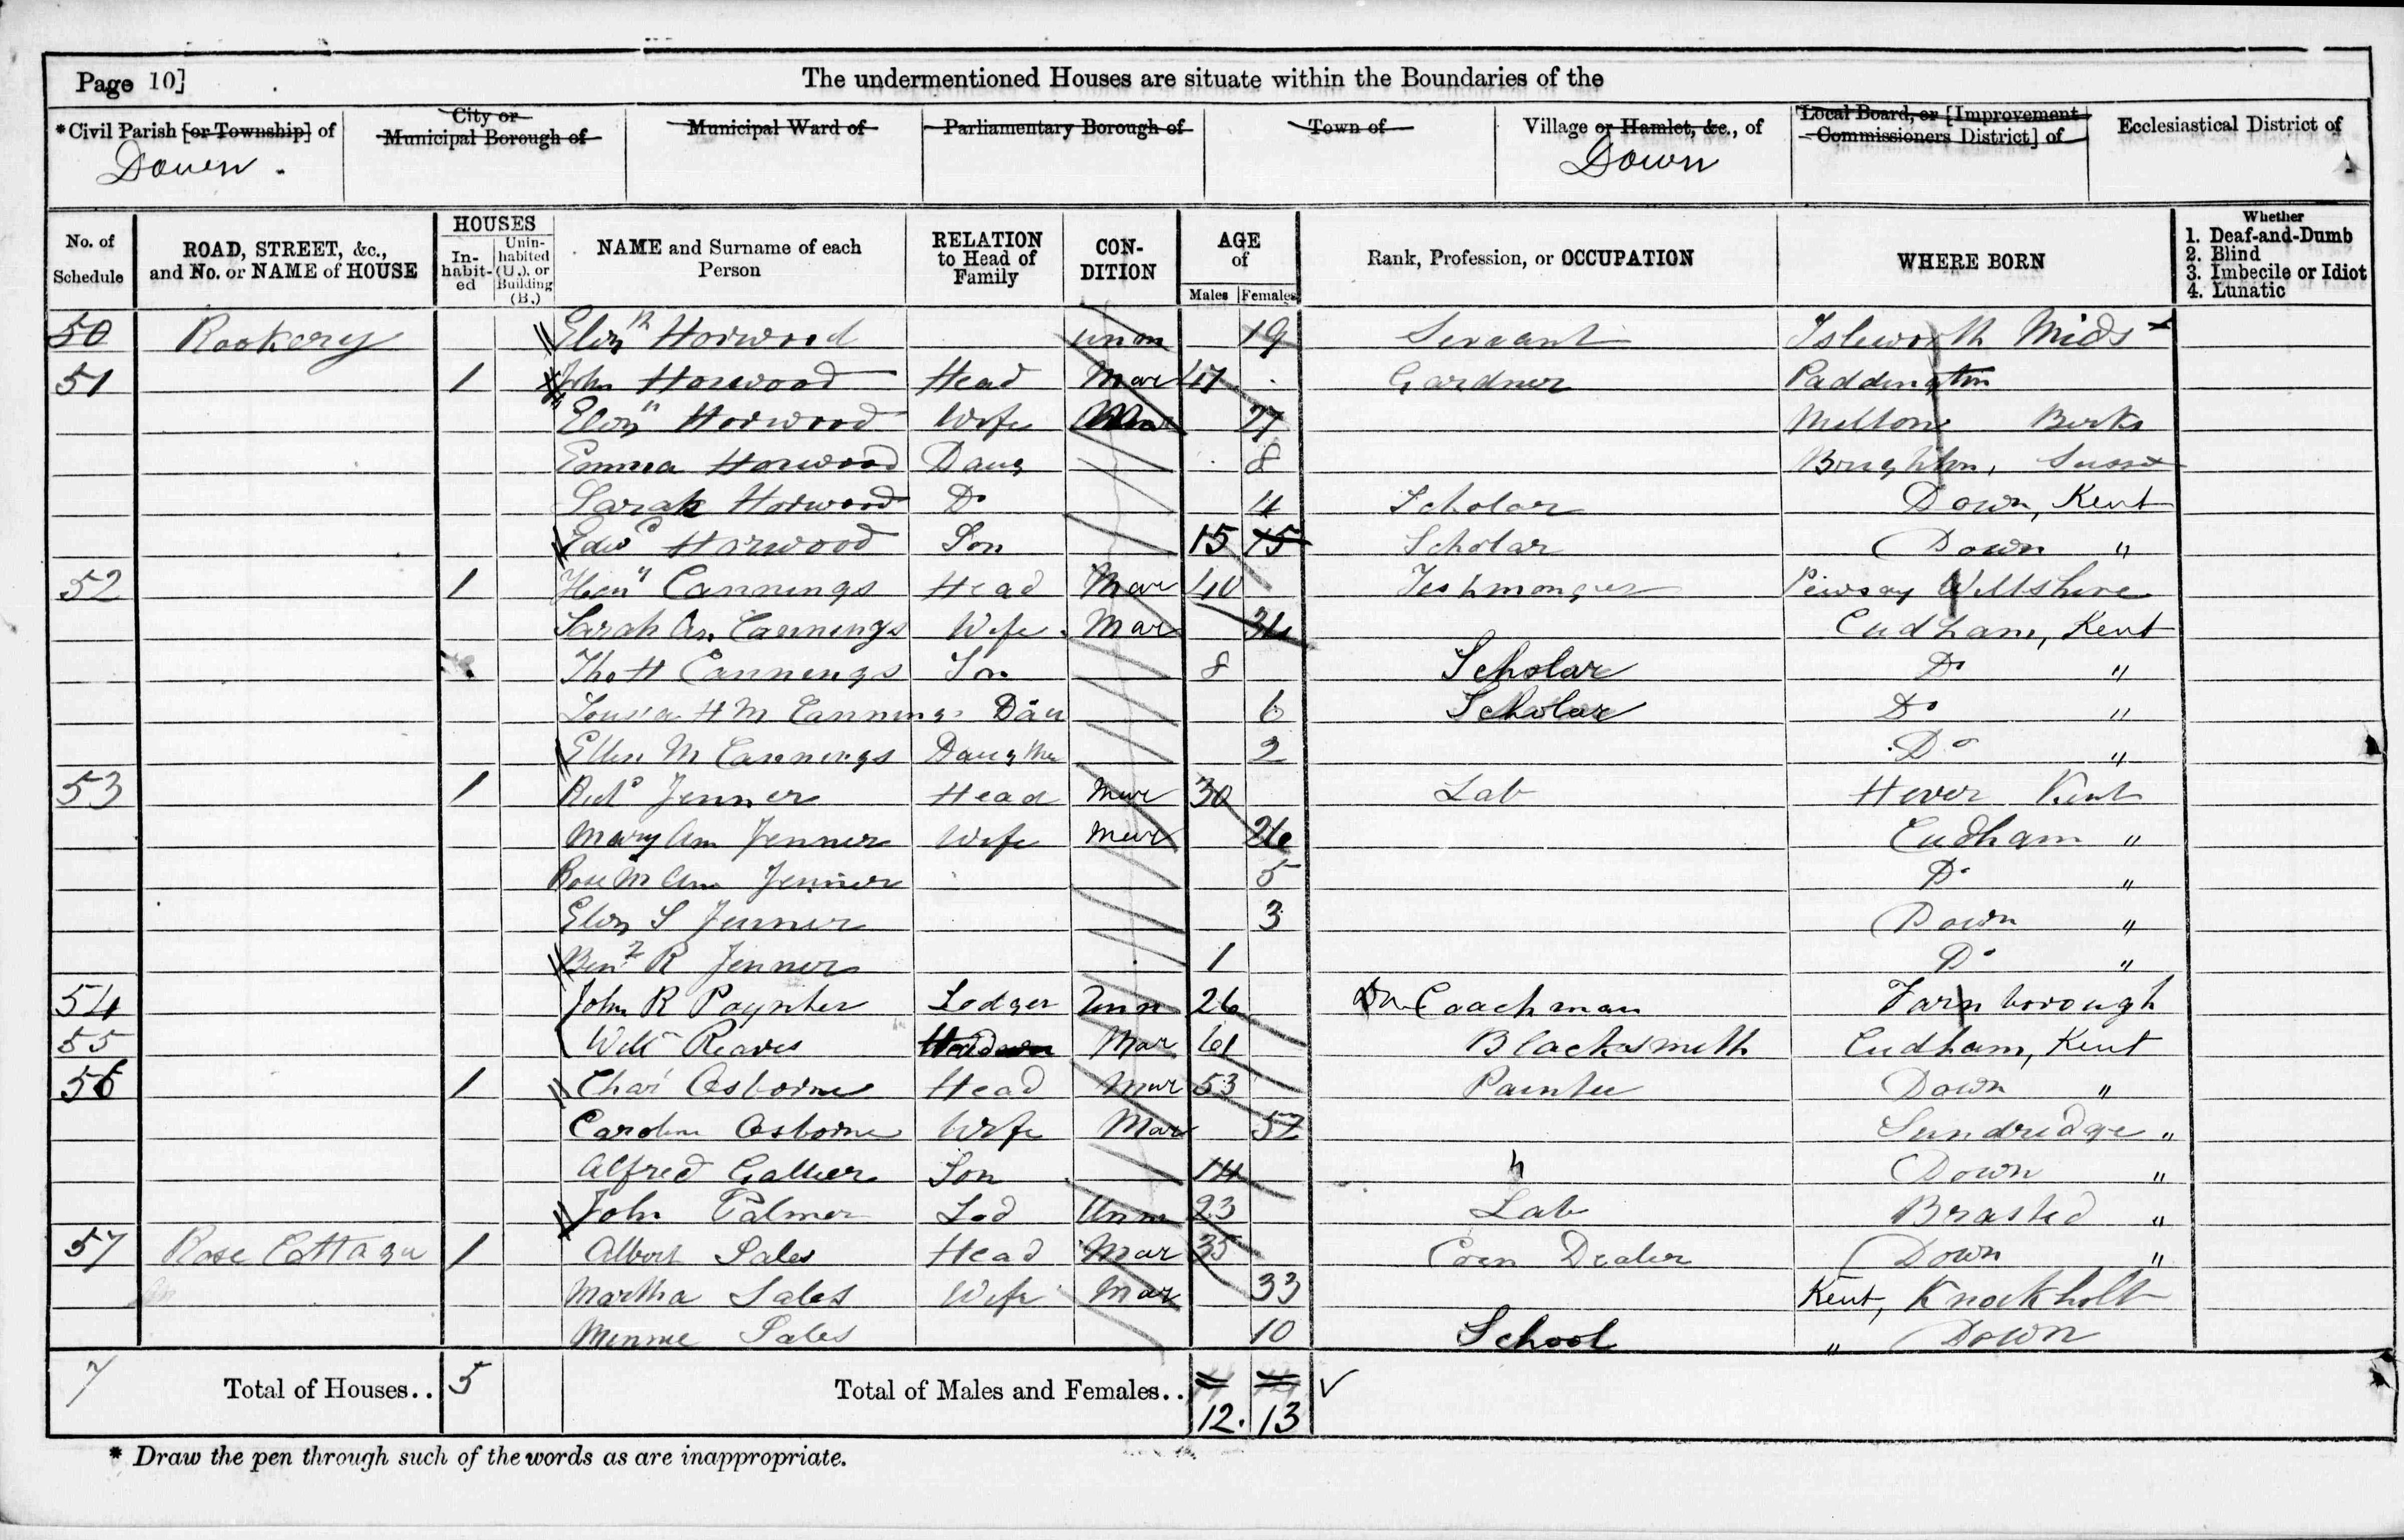 Page 10]
The undermentioned Houses are situate within the Boundaries of the
*Civil Parish [or Township] of Down.
City or Municipal Borough of
Municipal Ward of
Parliamentary Borough of
Town of
Village or Hamlet, &c., of Down
Local Board, or [Improvement Commissioners District] of
Ecclesiastical District of
No. of Schedule
ROAD, STREET, &c., and No. or NAME of HOUSE
HOUSES
In-habit-ed
Unin-habited (U.), or Building (B.)
NAME and Surname of each Person
RELATION to Head of Family
CON-DITION
AGE of
Males Females
Rank, Profession, or OCCUPATION
WHERE BORN
Whether
1. Deaf-and-Dumb
2. Blind
3. Imbecile or Idiot
4. Lunatic
50 Rookery Elizth Horwood unm 19 Servant Isleworth Midsx
51 1 John Horwood Head Mar 47 Gardner Paddington
Elizth Horwood Wife Mar Berks
Emma Horwood Daug 8 Brighton, Sussex
Sarah Horwood Do 4 Scholar Down, Kent
Edwd Horwood Son 15 15 Scholar Down "
52 1 Heny Cannings Head Mar 40 Fishmonger Pewsay Wiltshire
Sarah An. Cannings Wife Mar 34 Cudham, Kent
Tho H Cannings Son 8 Scholar Do "
Louisa H M Cannings Dau 6 Scholar Do "
Ellen M Cannings Daughter 2 Do "
53 1 Richd Jenner Head Mar 30 Lab Hever Kent
Mary Ann Jenner Wife Mar 26 Cudham "
Rose M Ann Jenner 5 Do "
Eliz S Jenner 3 Down "
Benn R Jenner 1 Do "
54 John R Paynter Lodger Unm 26 Coachman Farnborough
55 Willm Reaves Mar 61 Blacksmith Cudham, Kent
56 1 Chas Osborne Head Mar 53 Painter Down "
Caroline Osborne Wife Mar 52 Sundridge "
Alfred Son 14 " Down "
John Palmer Lod Unm 23 Lab Brasted "
57 Rose Cottage 1 Albert Sales Head Mar 35 Corn Dealer Down "
Martha Sales Wife Mar 33 Kent, Knockholt
Minnie Sales 10 School " Down
7 Total of Houses.. 5 Total of Males and Females..
12. 13
* Draw the pen through such of the words as are inappropriate.